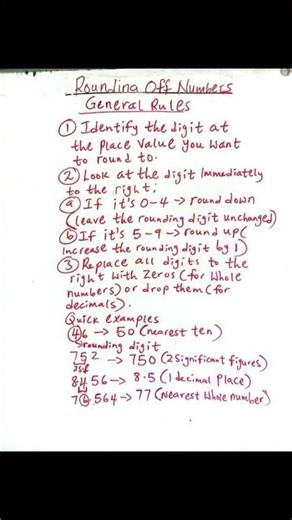 Rounding Off Numbers
General Rules
① Identify the digit at
the place value you want
to round to.
② Look at the digit immediately
to the right;
ⓐ If it's 0-4 → round down
(leave the rounding digit unchanged)
ⓑ If it's 5-9 → round up(
Increase the rounding digit by 1)
③ Replace all digits to the
right with zeros (for whole
numbers) or drop them (for
decimals).
Quick examples
46 → 50 (nearest ten)
rounding digit
752 → 750 (2 significant figures)
2sf
8.456 → 8.5 (1 decimal place)
76.564 → 77 (Nearest whole number)